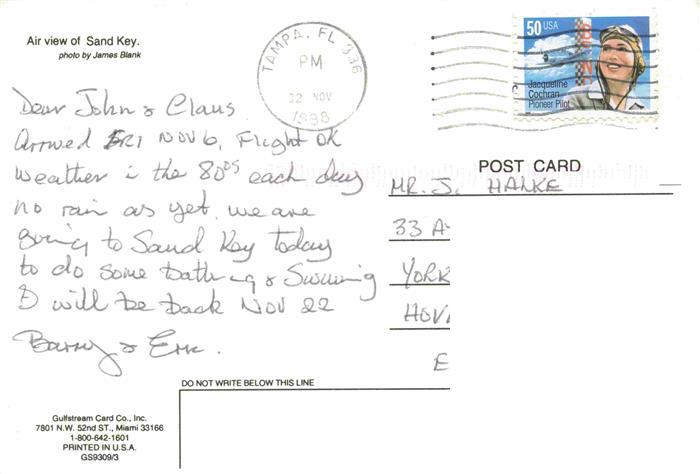 Air view of Sand Key.
photo by James Blank
TAMPA, FL 336
PM
12 NOV
1998
50 USA
Jacqueline
Cochran
Pioneer Pilot
Dear John & Claus
Arrived FRI NOV 6, Flight OK
Weather in the 80DS each day
no rain as yet. we are
going to Sand Key today
to do some bathing & Swimming
& will be back NOV 22
Barry & Eric.
POST CARD
MR. J. HALKE
33 A
YORK
HOV
E
DO NOT WRITE BELOW THIS LINE
Gulfstream Card Co., Inc.
7801 N.W. 52nd ST., Miami 33166
1-800-642-1601
PRINTED IN U.S.A.
GS9309/3